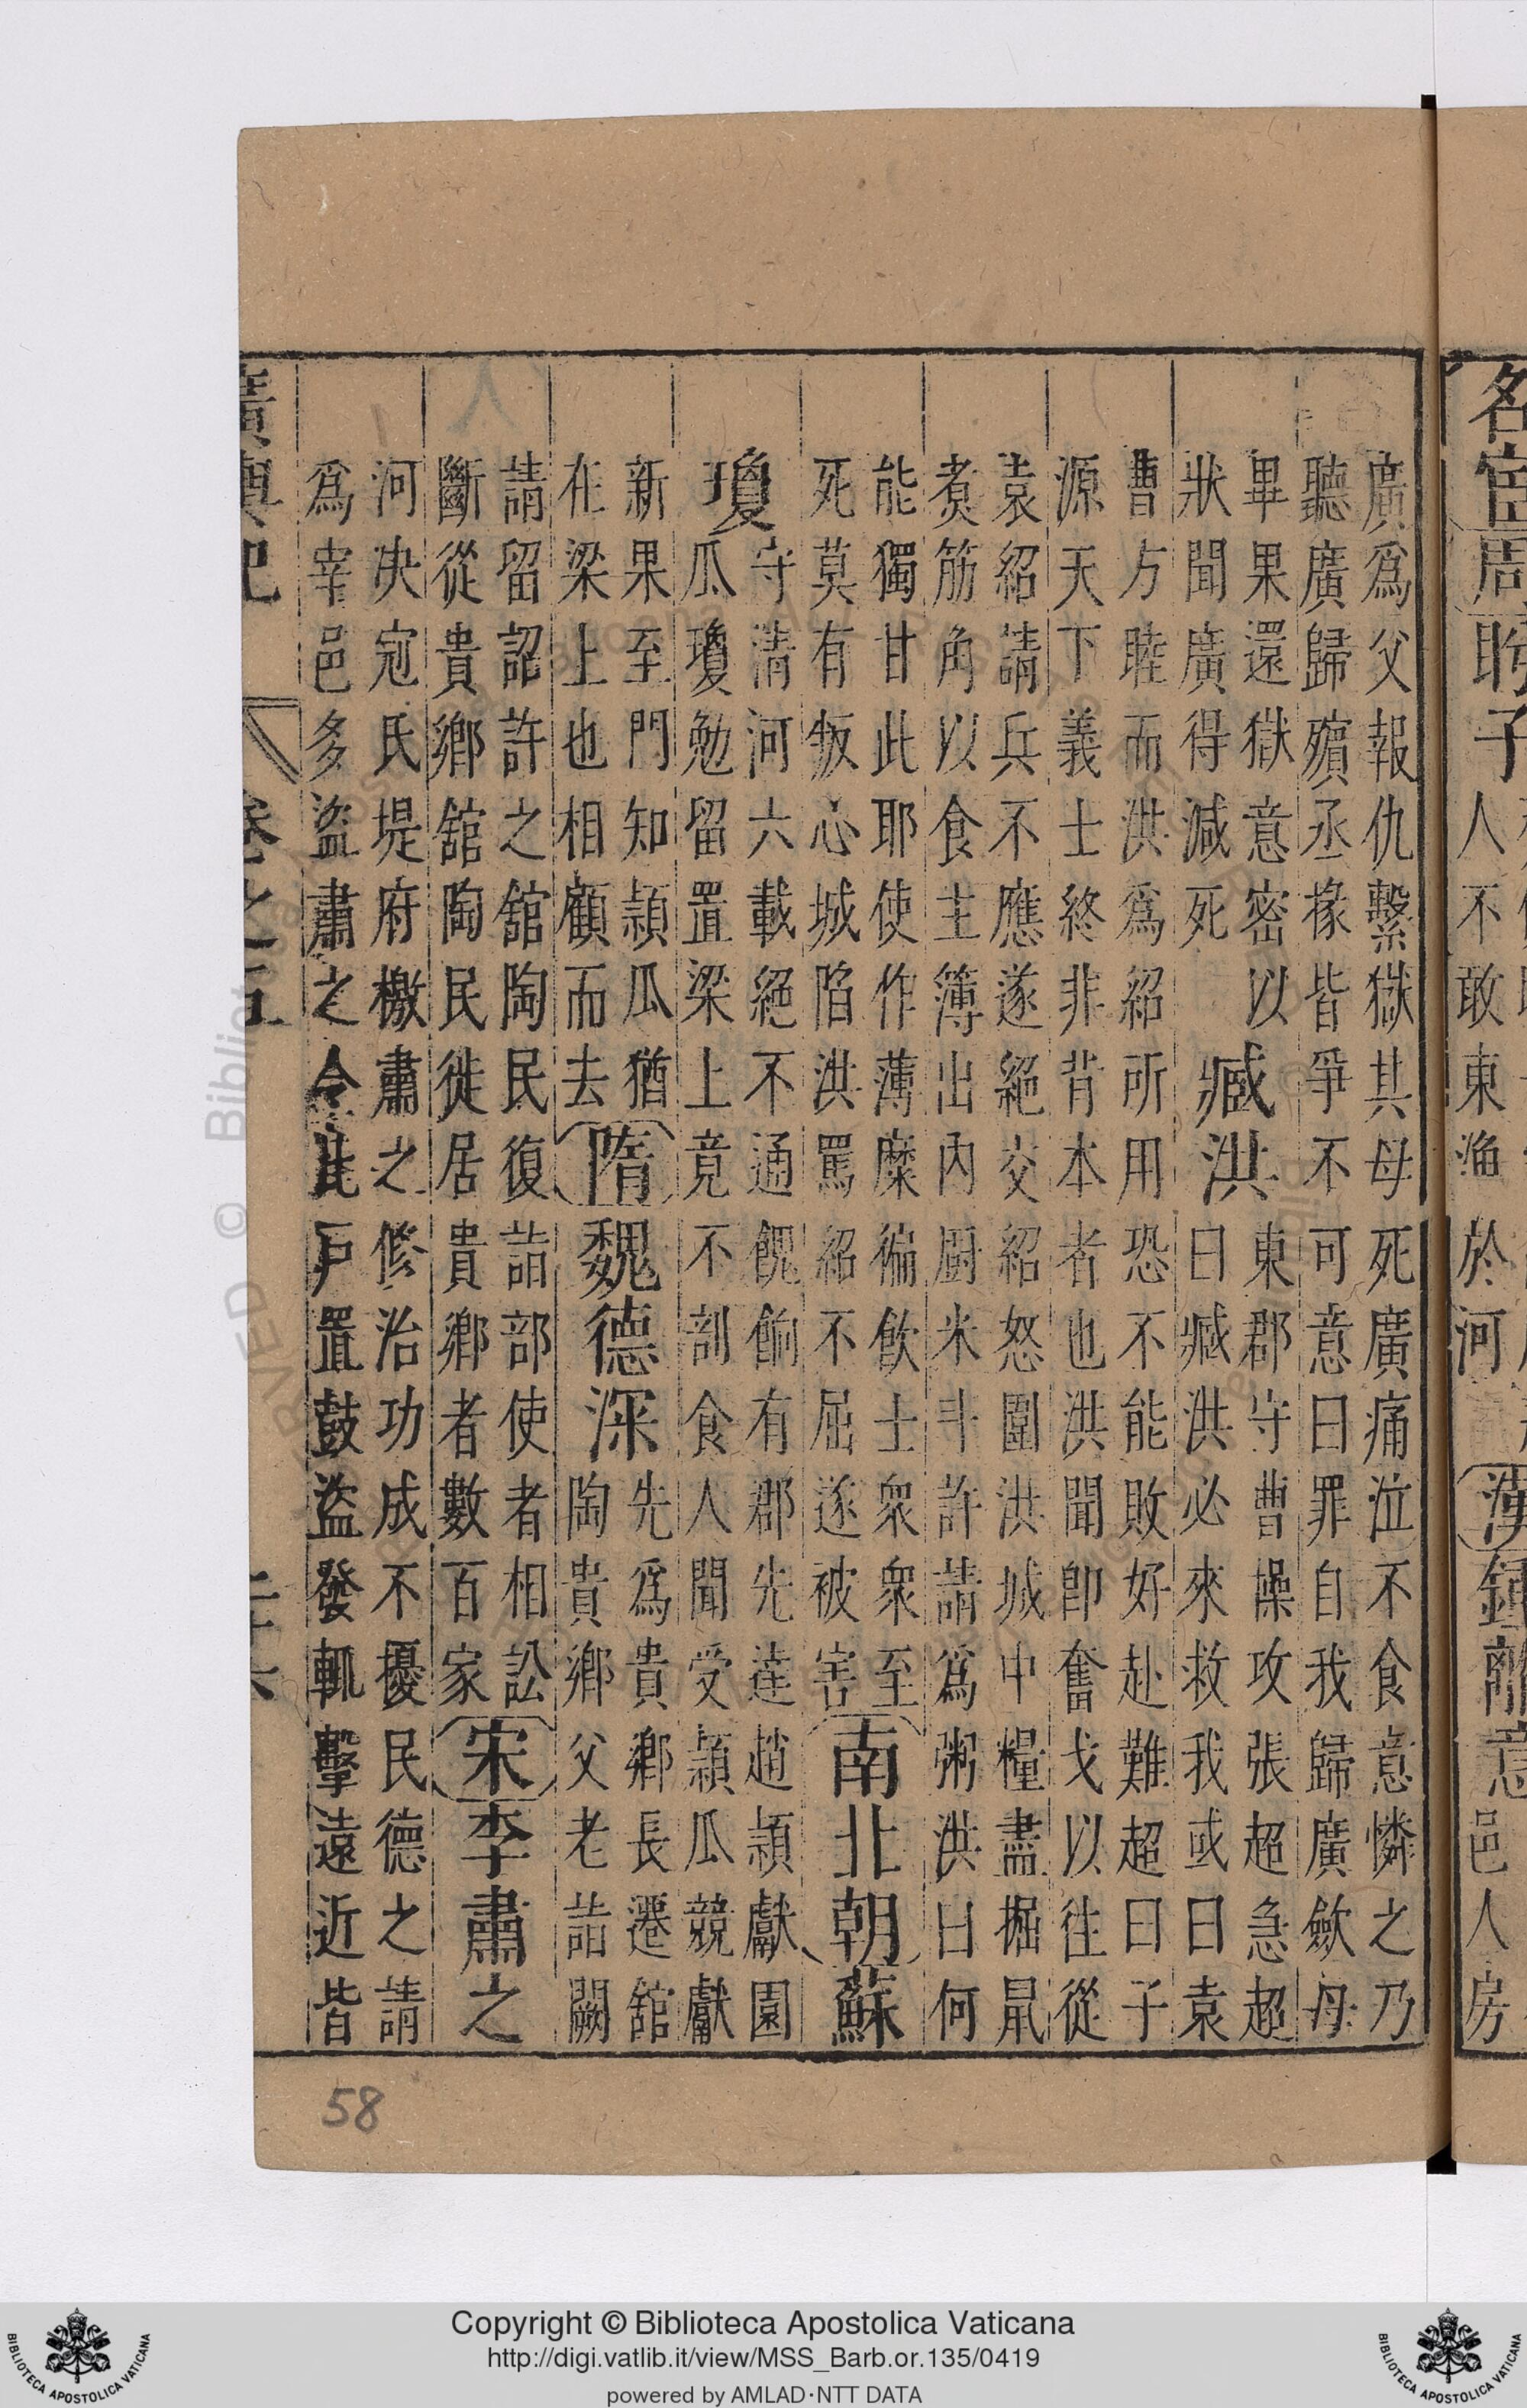 名宦 周 盻子 人不敢東漁於河 漢 鍾離意 邑人房
廣爲父報仇繫獄其母死廣痛泣不食意憐之乃
聽廣歸殯丞掾皆爭不可意曰罪自我歸廣斂母
畢果還獄意密以
狀聞廣得減死
臧洪
東郡守曹操攻張超急超
曰臧洪必來救我或曰袁
曹方睦而洪爲紹所用恐不能敗好赴難超曰子
源天下義士終非背本者也洪聞即奮戈以往從
袁紹請兵不應遂絕交紹怒圍洪城中糧盡掘鼠
煮筋角以食主簿出內厨米斗許請爲粥洪曰何
能獨甘此耶使作薄糜徧飲士衆衆至
死莫有叛心城陷洪罵紹不屈遂被害
南北朝 蘇
瓊
守清河六載絕不通餽餉有郡先達趙頴獻園
瓜瓊勉留置梁上竟不剖食人聞受頴瓜競獻
新果至門知頴瓜猶
在梁上也相顧而去
隋 魏德深
先爲貴鄉長遷舘
陶貴鄉父老詣闕
請留詔許之舘陶民復詣部使者相訟
斷從貴鄉舘陶民徙居貴鄉者數百家
宋 李肅之
河决宼氏堤府檄肅之修治功成不擾民德之請
爲宰邑多盜肅之令比戸置鼓盜發輒擊遠近皆
廣輿記 卷之五 二十六
58
Copyright © Biblioteca Apostolica Vaticana
http://digi.vatlib.it/view/MSS_Barb.or.135/0419
powered by AMLAD·NTT DATA